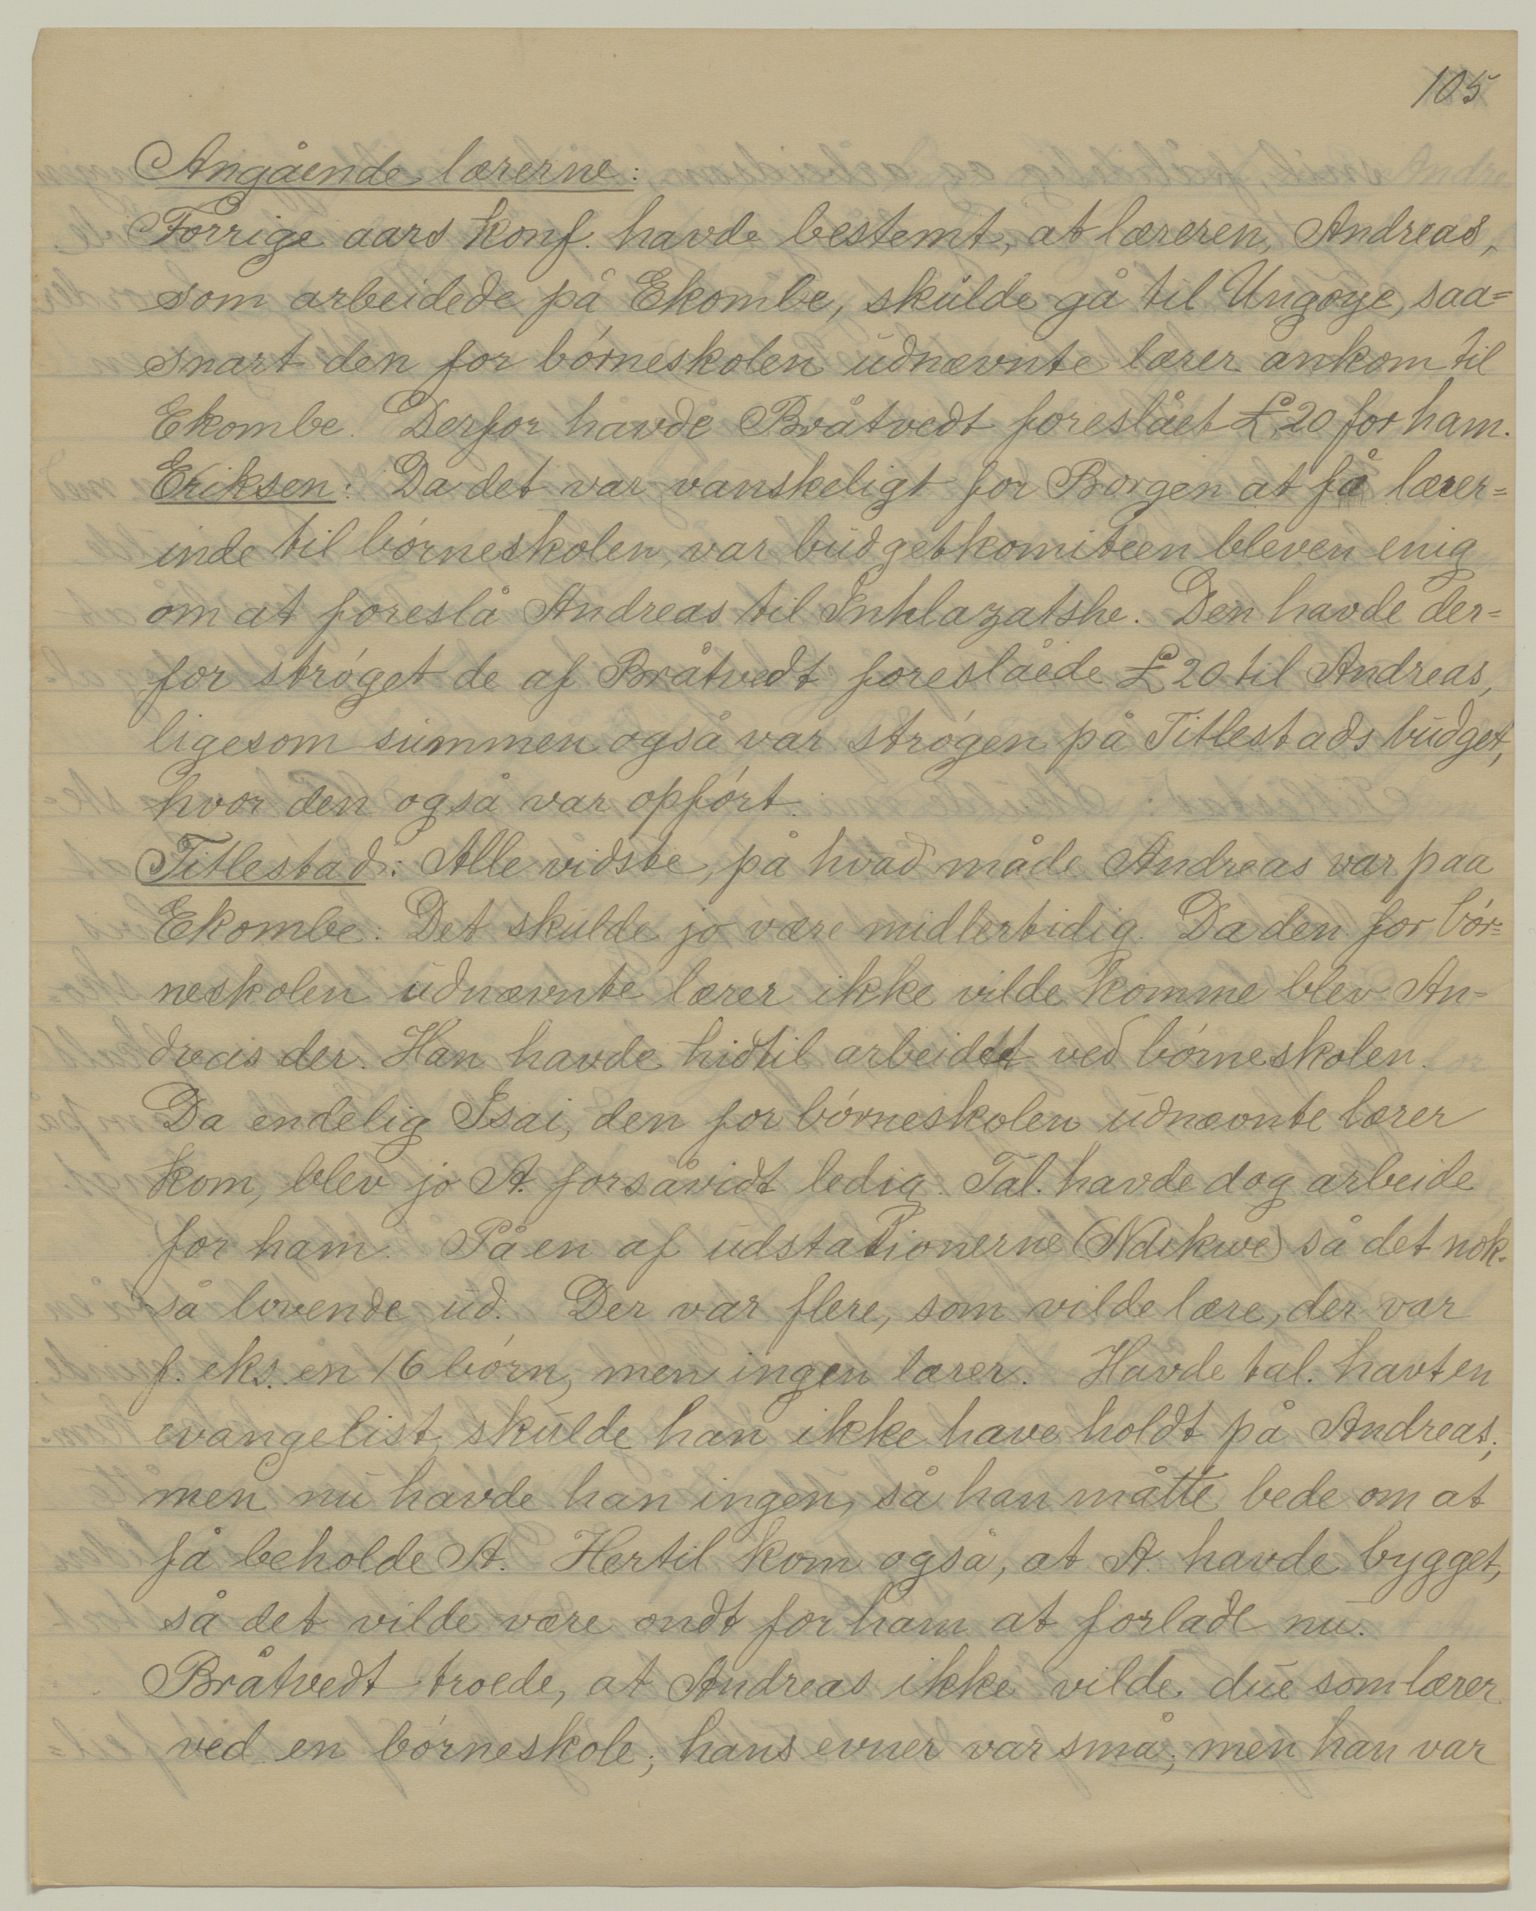 105
Angående lærerne:
Forrige aars konf. havde bestemt, at læreren, Andreas,
som arbeidede på Ekombe, skulde gå til Ungoye, saa=
snart den for börneskolen udnævnte lærer ankom til
Ekombe. Derfor havde Bråtvedt foreslået £20 for ham.
Eriksen: Da det var vanskeligt for Borgen at få lærer=
inde til börneskolen, var budgetkomiteen bleven enig
om at foreslå Andreas til Inhlazatshe. Den havde der=
for ströget de af Bråtvedt foreslåede £20 til Andreas,
ligesom summen også var strögen på Titlestads budget,
hvor den også var opfört.
Titlestad: Alle vidste, på hvad måde Andreas var paa
Ekombe: Det skulde jo være midlertidig. Da den for bör=
neskolen udnævnte lærer ikke vilde komme blev An=
dreas der. Han havde hidtil arbeidet ved börneskolen.
Da endelig Isai, den for börneskolen udnævnte lærer
kom, blev jo A. forsåvidt ledig. Tal. havde dog arbeide
for ham. På en af udstationerne (Ndikwe) så det nok-
så lovende ud. Der var flere, som vilde lære, der var
f. eks. en 16 börn, men ingen lærer. Havde tal. havt en
evangelist, skulde han ikke have holdt på Andreas;
men nu havde han ingen, så han måtte bede om at
få beholde A. Hertil kom også, at A. havde bygget,
så det vilde være ondt for ham at forlade nu.
Bråtvedt troede, at Andreas ikke vilde due som lærer
ved en börneskole; hans evner var små; men han var